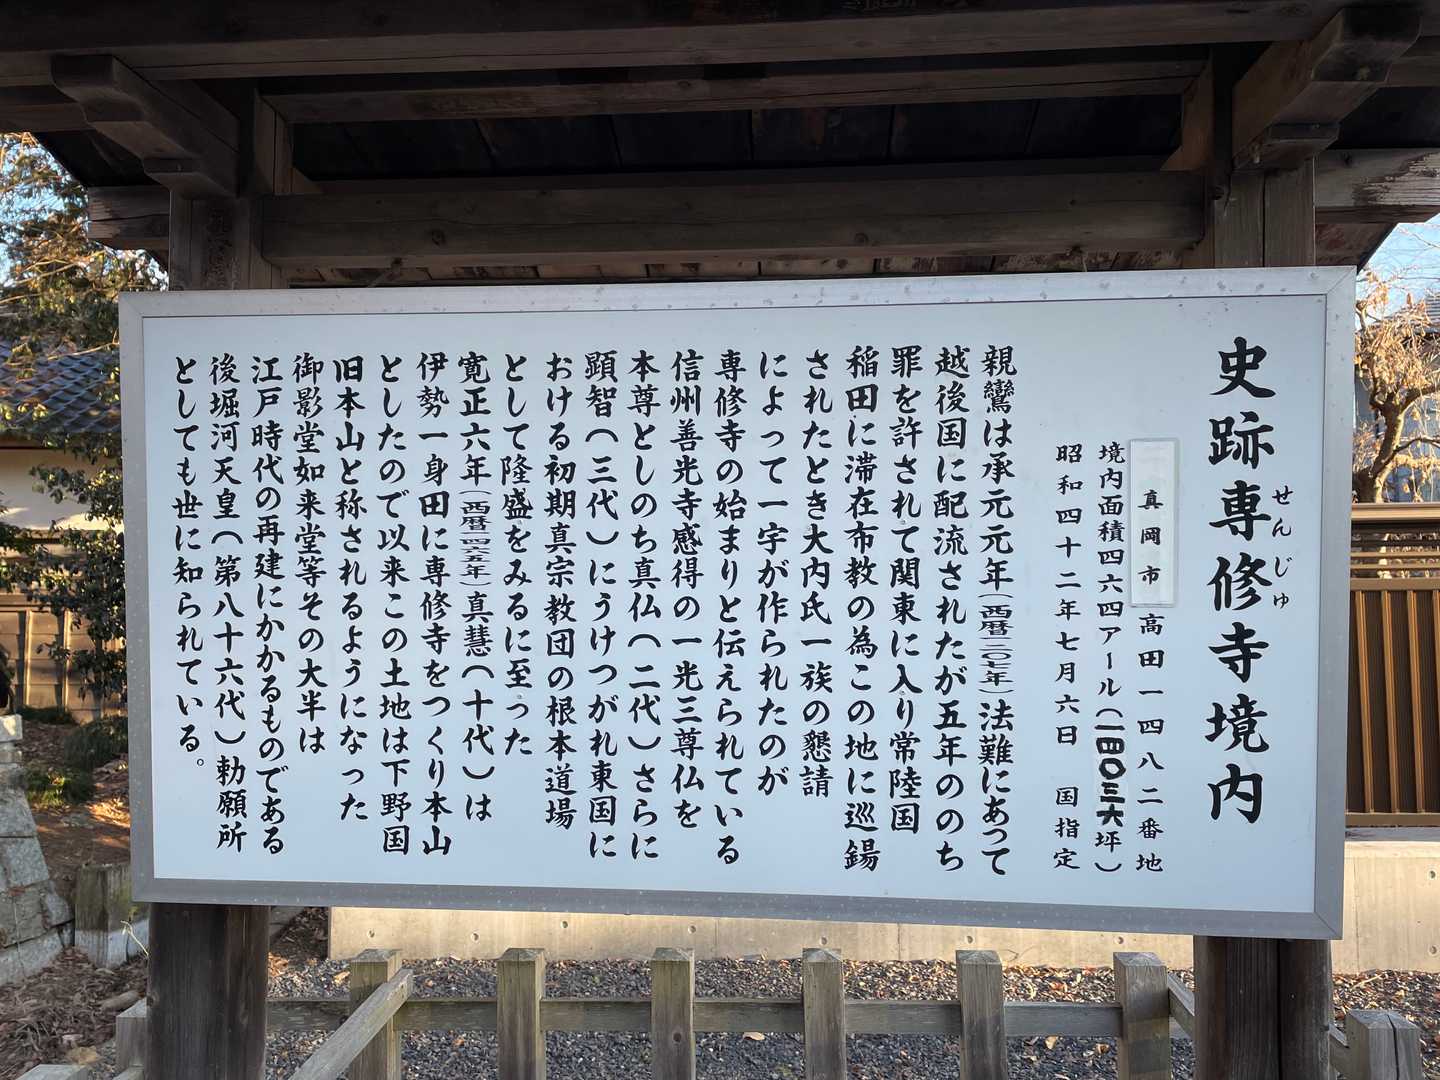 史跡専修寺境内
せんじゅ
真岡市高田一四八二番地
境内面積四六四アール（一四〇三六坪）
昭和四十二年七月六日 国指定
親鸞は承元元年（西暦一二〇七年）法難にあって
越後国に配流されたが五年ののち
罪を許されて関東に入り常陸国
稲田に滞在布教の為この地に巡錫
されたとき大内氏一族の懇請
によって一宇が作られたのが
専修寺の始まりと伝えられている
信州善光寺感得の一光三尊仏を
本尊としのち真仏（二代）さらに
顕智（三代）にうけつがれ東国に
おける初期真宗教団の根本道場
として隆盛をみるに至った
寛正六年（西暦一四六五年）真慧（十代）は
伊勢一身田に専修寺をつくり本山
としたので以来この土地は下野国
旧本山と称されるようになった
御影堂如来堂等その大半は
江戸時代の再建にかかるものである
後堀河天皇（第八十六代）勅願所
としても世に知られている。